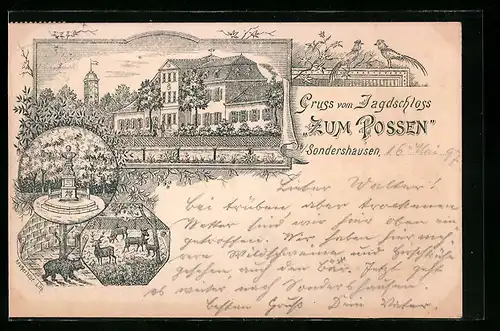 Gruss vom Jagdschloss
"ZUM POSSEN"
b/Sondershausen, 16 Mai 97
Lieber Walter!
Bei trüben aber trockenen
Wetter sind wir hier oben ein
getroffen. Wir haben hier meh
rere Wildschweine und Hirsche
gesehen, auch den Bär. Jetzt geht
es wieder nach Sondershausen.
Besten Gruß Dein Vater.